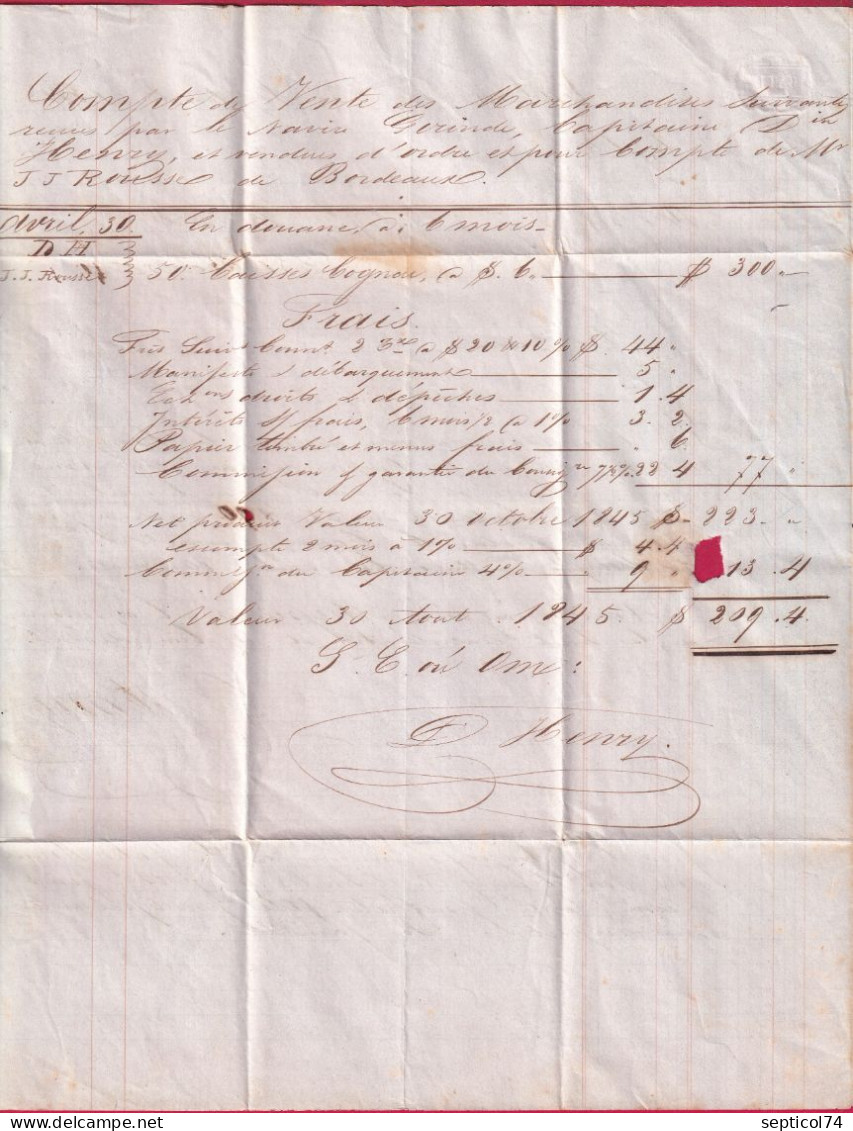 Compte de Vente des Marchandises suivantes
reçues par le Navire Gorinde, Capitaine D.
Henry, et vendues d'ordre et pour Compte de Mr
J J Rousse de Bordeaux.
Avril, 30. En douane, à 6 mois.
D H
J. J. Rousse 50 Caisses Cognac, à $. 6 " $ 300 "
Frais.
2 à $ 20 & 10 % $. 44 "
Manifeste & débarquement 5 "
droits & dépêches 1. 4
Intérêts s/ frais, 6 mois 1/2 à 1% 3. 2
Papier timbré et menus frais " 6
Commission & garantie du 7 1/2 % 22 4 77 "
Net produit Valeur 30 octobre 1845 $ 223. "
escompte 2 mois à 1% $ 4. 4
du Capitaine 4% 9 " 13. 4
Valeur 30 Aout 1845. $ 209. 4.
S. E. où Ome:
D Henry.
septicol74